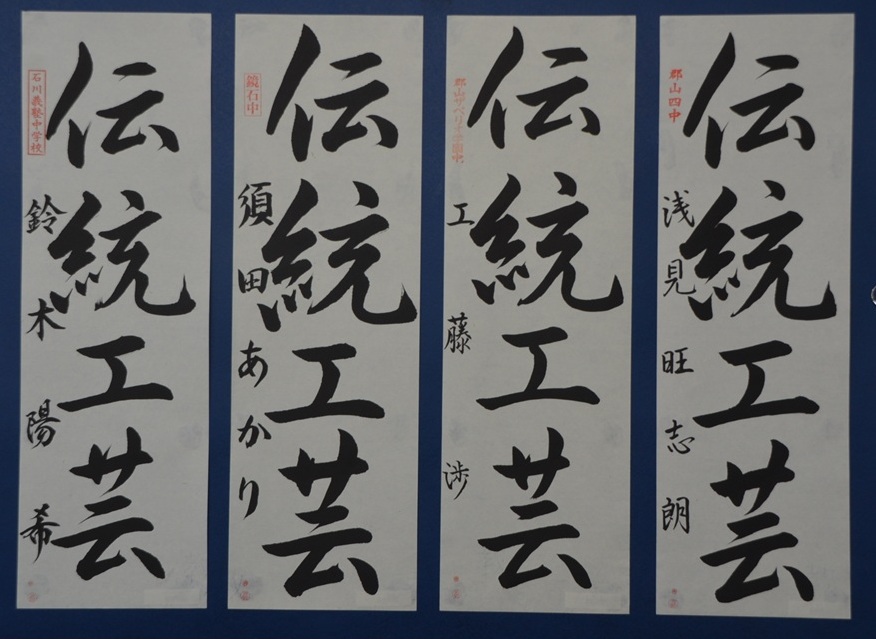 伝統工芸
郡山四中
浅見旺志朗
伝統工芸
郡山ザベリオ学園中
工藤渉
伝統工芸
鏡石中
須田あかり
伝統工芸
石川義塾中学校
鈴木陽希